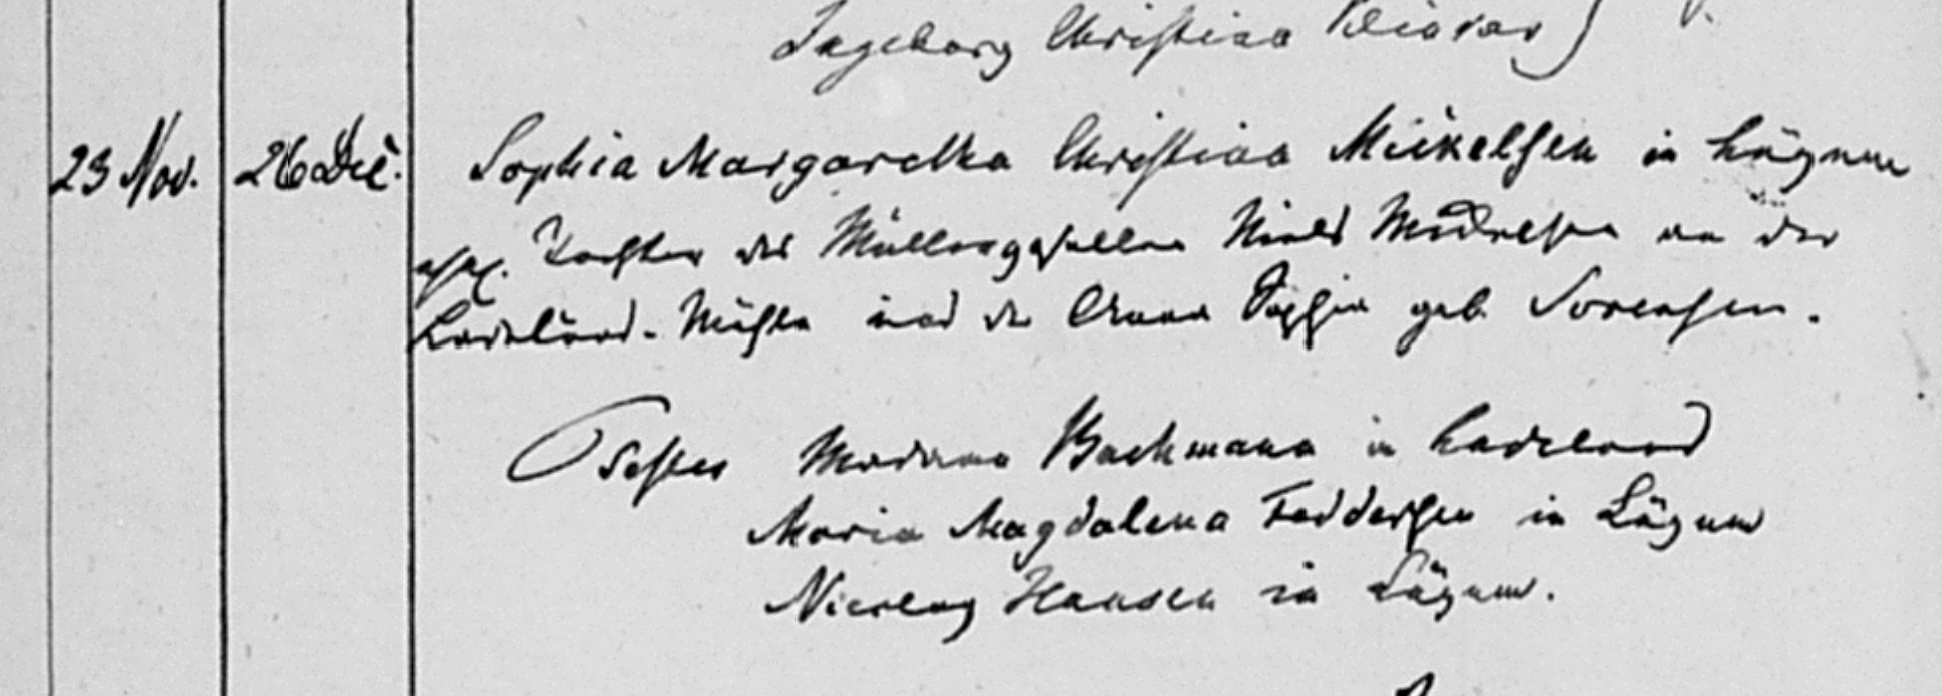 Ingeborg Christina
23 Nov. 26 Dec. Sophia Margaretha Christina Mickelsen in Lügum
ehel. Tochter des Müllergesellen Niels Mickelsen an der
Ladelund-Mühle und der Anna Sophia geb. Sorensen.
Testes Madame Bachmann in Ladelund
Maria Magdalena Feddersen in Lügum
Nicolay Hansen in Lügum.